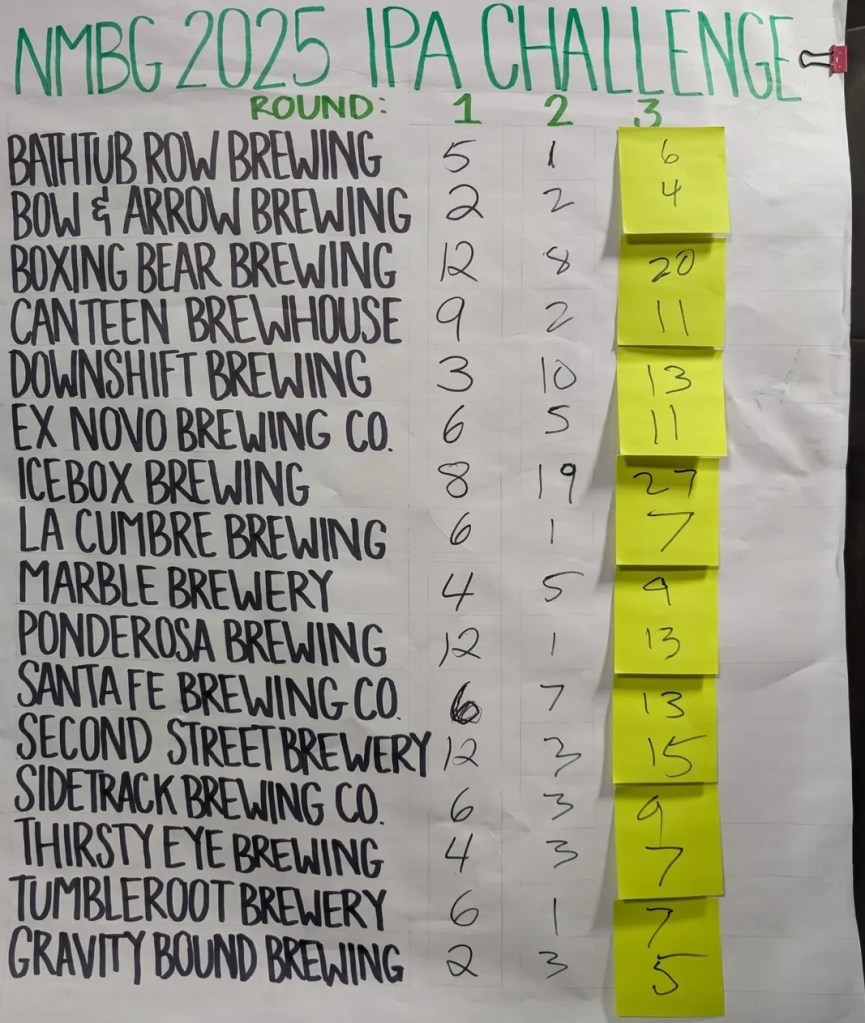 NMBG 2025 IPA CHALLENGE
ROUND: 1 2 3
BATHTUB ROW BREWING 5 1 6
BOW & ARROW BREWING 2 2 4
BOXING BEAR BREWING 12 8 20
CANTEEN BREWHOUSE 9 2 11
DOWNSHIFT BREWING 3 10 13
EX NOVO BREWING CO. 6 5 11
ICEBOX BREWING 8 19 27
LA CUMBRE BREWING 6 1 7
MARBLE BREWERY 4 5 9
PONDEROSA BREWING 12 1 13
SANTA FE BREWING CO. 6 7 13
SECOND STREET BREWERY 12 3 15
SIDETRACK BREWING CO. 6 3 9
THIRSTY EYE BREWING 4 3 7
TUMBLEROOT BREWERY 6 1 7
GRAVITY BOUND BREWING 2 3 5